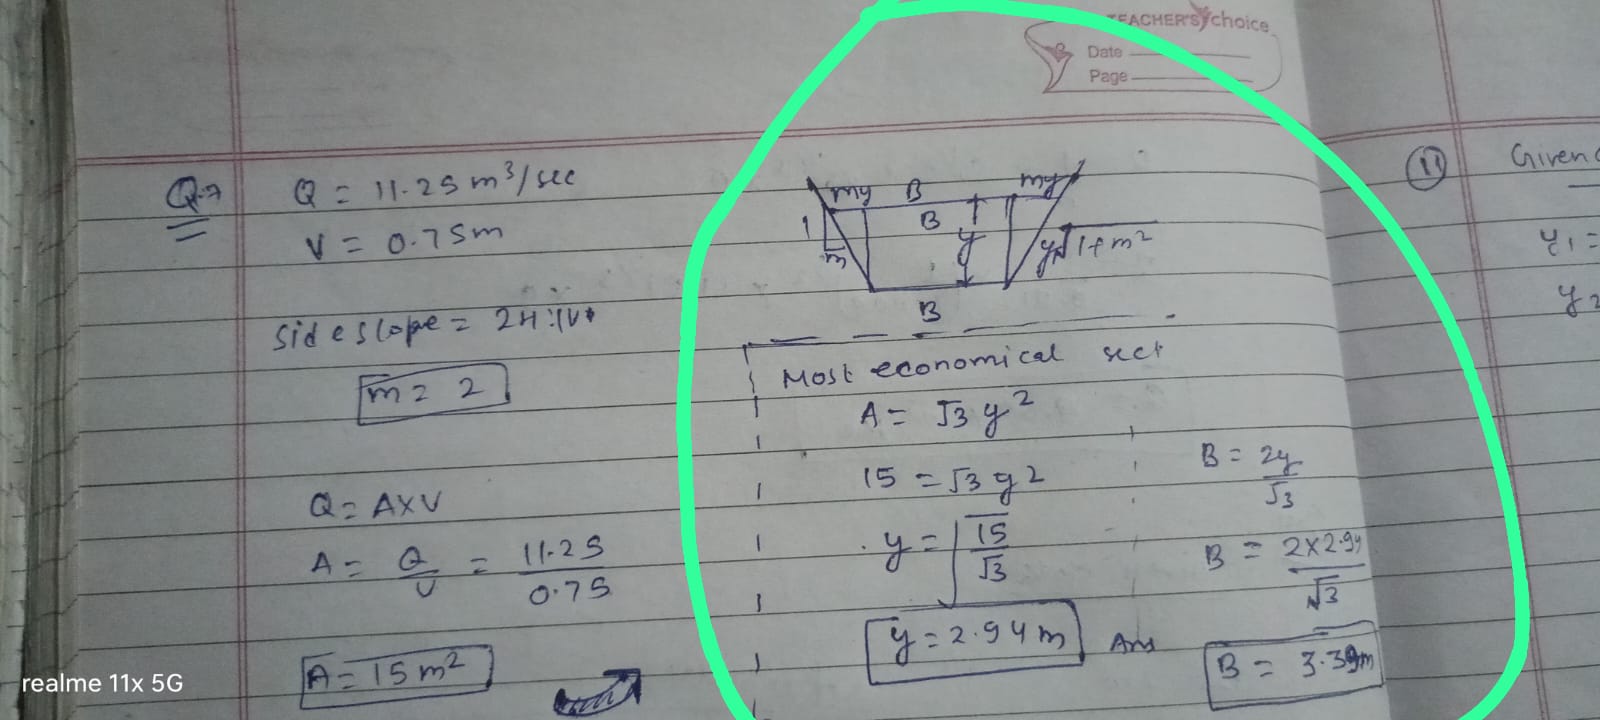 TEACHER'S choice
Date
Page
Q.7
Q = 11.25 m³/sec
V = 0.75m
side slope = 2H:1V
m = 2
Q = A×V
A = Q/V = 11.25/0.75
A = 15 m²
my B my
B
1
m
y
y√1+m²
B
Most economical sect
A = √3 y²
15 = √3 y²
y = √15/√3
y = 2.94 m Ans
B = 2y/√3
B = 2×2.94/√3
B = 3.39m
11
Given
y₁ =
realme 11x 5G